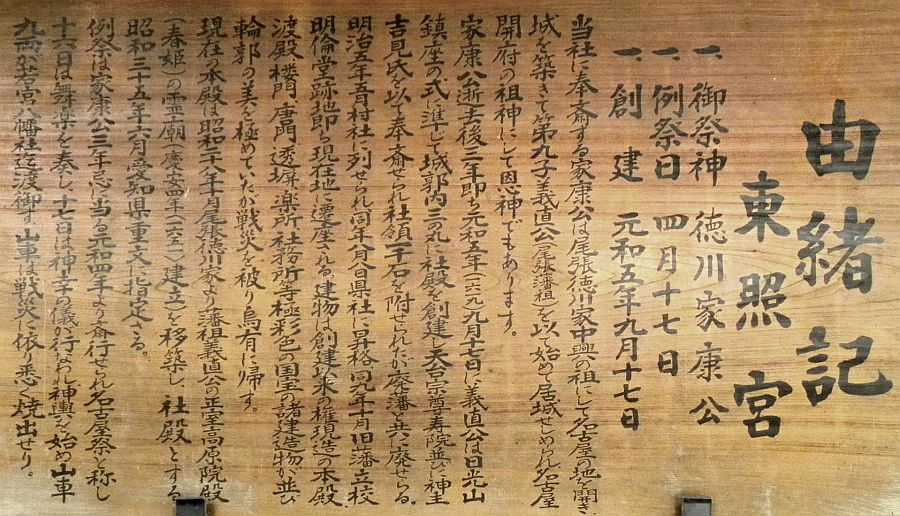 由緒記
東照宮
一、御祭神 徳川家康公
一、例祭日 四月十七日
一、創建 元和五年九月十七日
当社に奉斎する家康公は尾張徳川家中興の祖にして名古屋の地を開き、
城を築きて第九子義直公(尾張藩祖)を以て始めて居城せしめられ名古屋
開府の祖神にして恩神でもあります。
家康公逝去後三年即ち元和五年(一六一九)九月十七日に義直公は日光山
鎮座の式に準じて城郭内三の丸に社殿を創建し天台宗尊寿院並びに神主
吉見氏を以て奉斎せられ社領一千石を附せられたが廃藩と共に廃せらる。
明治五年五月村社に列せられ同年八月八日県社に昇格同九年十月旧藩立校
明倫堂跡地即ち現在地に遷座さる、建物は創建以来の権現造の本殿
渡殿、楼門、唐門、透塀、楽所、社務所等極彩色の国宝の諸建造物が並び
輪郭の美を極めていたが戦火を被り烏有に帰す。
現在の本殿は昭和二十八年十月尾張徳川家より藩祖義直公の正室高原院殿
(春姫)の霊廟(慶安四年(一六五一)建立)を移築し、社殿とする
昭和三十五年六月愛知県重文に指定さる。
例祭は家康公三年忌に当る元和四年より斎行せられ名古屋祭と称し
十六日は舞楽を奏し、十七日は神幸の儀が行なわれ神輿を始め山車
九両が若宮八幡社迄渡御す、山車は戦災に依り悉く焼出せり。